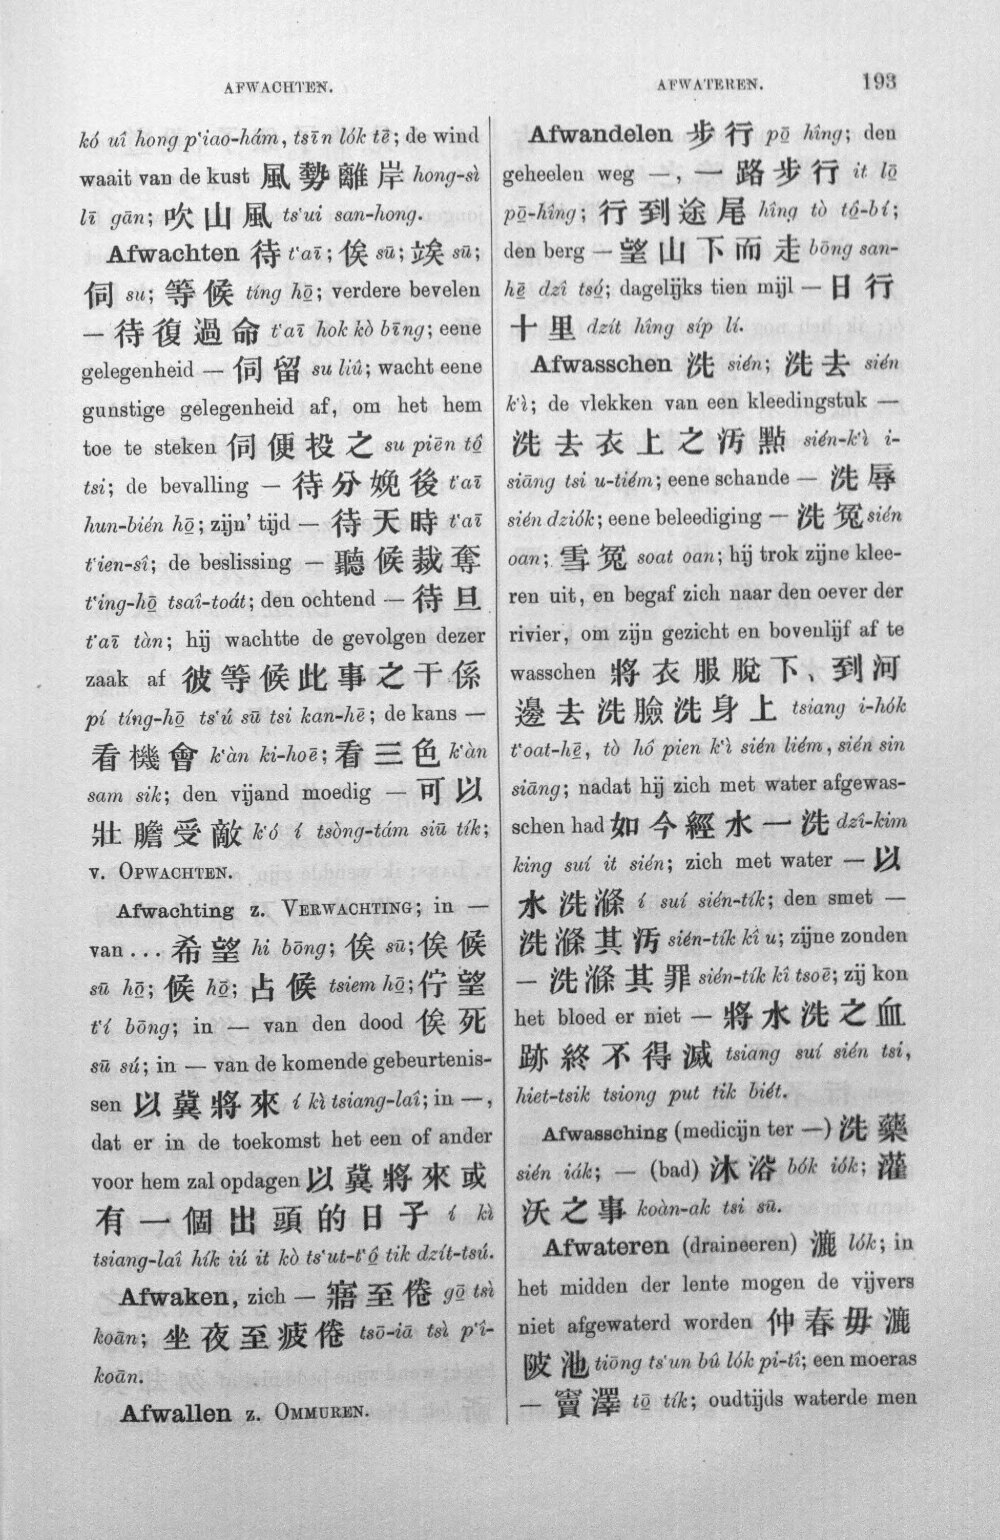 AFWACHTEN.
AFWATEREN. 193
kó uî hong p‘iao-hám, tsīn lók tē; de wind
waait van de kust 風勢離岸 hong-sì
lī gān; 吹山風 ts‘ui san-hong.
Afwachten 待 t‘aī; 俟 sū; 竢 sū;
伺 su; 等候 tíng hō̤; verdere bevelen
— 待復過命 t‘aī hok kò bīng; eene
gelegenheid — 伺留 su liû; wacht eene
gunstige gelegenheid af, om het hem
toe te steken 伺便投之 su piēn tô̤
tsi; de bevalling — 待分娩後 t‘aī
hun-bién hō̤; zijn’ tijd — 待天時 t‘aī
t‘ien-sî; de beslissing — 聽候裁奪
t‘ing-hō̤ tsaî-toát; den ochtend — 待旦
t‘aī tàn; hij wachtte de gevolgen dezer
zaak af 彼等候此事之干係
pí tíng-hō̤ ts‘ú sū tsi kan-hē; de kans —
看機會 k‘àn ki-hoē; 看三色 k‘àn
sam sik; den vijand moedig — 可以
壯膽受敵 k‘ó í tsòng-tám siū tík;
v. OPWACHTEN.
Afwachting z. VERWACHTING; in —
van ... 希望 hi bōng; 俟 sū; 俟候
sū hō̤; 候 hō̤; 占候 tsiem hō̤; 佇望
t‘í bōng; in — van den dood 俟死
sū sú; in — van de komende gebeurtenis-
sen 以冀將來 í kì tsiang-laî; in —,
dat er in de toekomst het een of ander
voor hem zal opdagen 以冀將來或
有一個出頭的日子 í kì
tsiang-laî hík iú it kò ts‘ut-t‘ô̤ tik dzít-tsú.
Afwaken, zich — 寤至倦 gō̤ tsì
koān; 坐夜至疲倦 tsō-iā tsì p‘î-
koān.
Afwallen z. OMMUREN.
Afwandelen 步行 pō̤ hîng; den
geheelen weg —, 一路步行 it lō̤
pō̤-hîng; 行到途尾 hîng tò tô̤-bí;
den berg — 望山下而走 bōng san-
hē̤ dzî tsó̤; dagelijks tien mijl — 日行
十里 dzít hîng síp lí.
Afwasschen 洗 sién; 洗去 sién
k‘ì; de vlekken van een kleedingstuk —
洗去衣上之汚點 sién-k‘ì i-
siāng tsi u-tiém; eene schande — 洗辱
sién dziók; eene beleediging — 洗冤 sién
oan; 雪冤 soat oan; hij trok zijne klee-
ren uit, en begaf zich naar den oever der
rivier, om zijn gezicht en bovenlijf af te
wasschen 將衣服脫下、到河
邊去洗臉洗身上 tsiang i-hók
t‘oat-hē, tò hô pien k‘ì sién liém, sién sin
siāng; nadat hij zich met water afgewas-
schen had 如今經水一洗 dzî-kim
king suí it sién; zich met water — 以
水洗滌 í suí sién-tík; den smet —
洗滌其汚 sién-tík kî u; zijne zonden
— 洗滌其罪 sién-tík kî tsoē; zij kon
het bloed er niet — 將水洗之血
跡終不得滅 tsiang suí sién tsi,
hiet-tsik tsiong put tik biét.
Afwassching (medicijn ter —) 洗藥
sién iák; — (bad) 沐浴 bók iók; 灌
沃之事 koàn-ak tsi sū.
Afwateren (draineeren) 漉 lók; in
het midden der lente mogen de vijvers
niet afgewaterd worden 仲春毋漉
陂池 tiōng ts‘un bû lók pi-tî; een moeras
— 竇澤 tō̤ tík; oudtijds waterde men